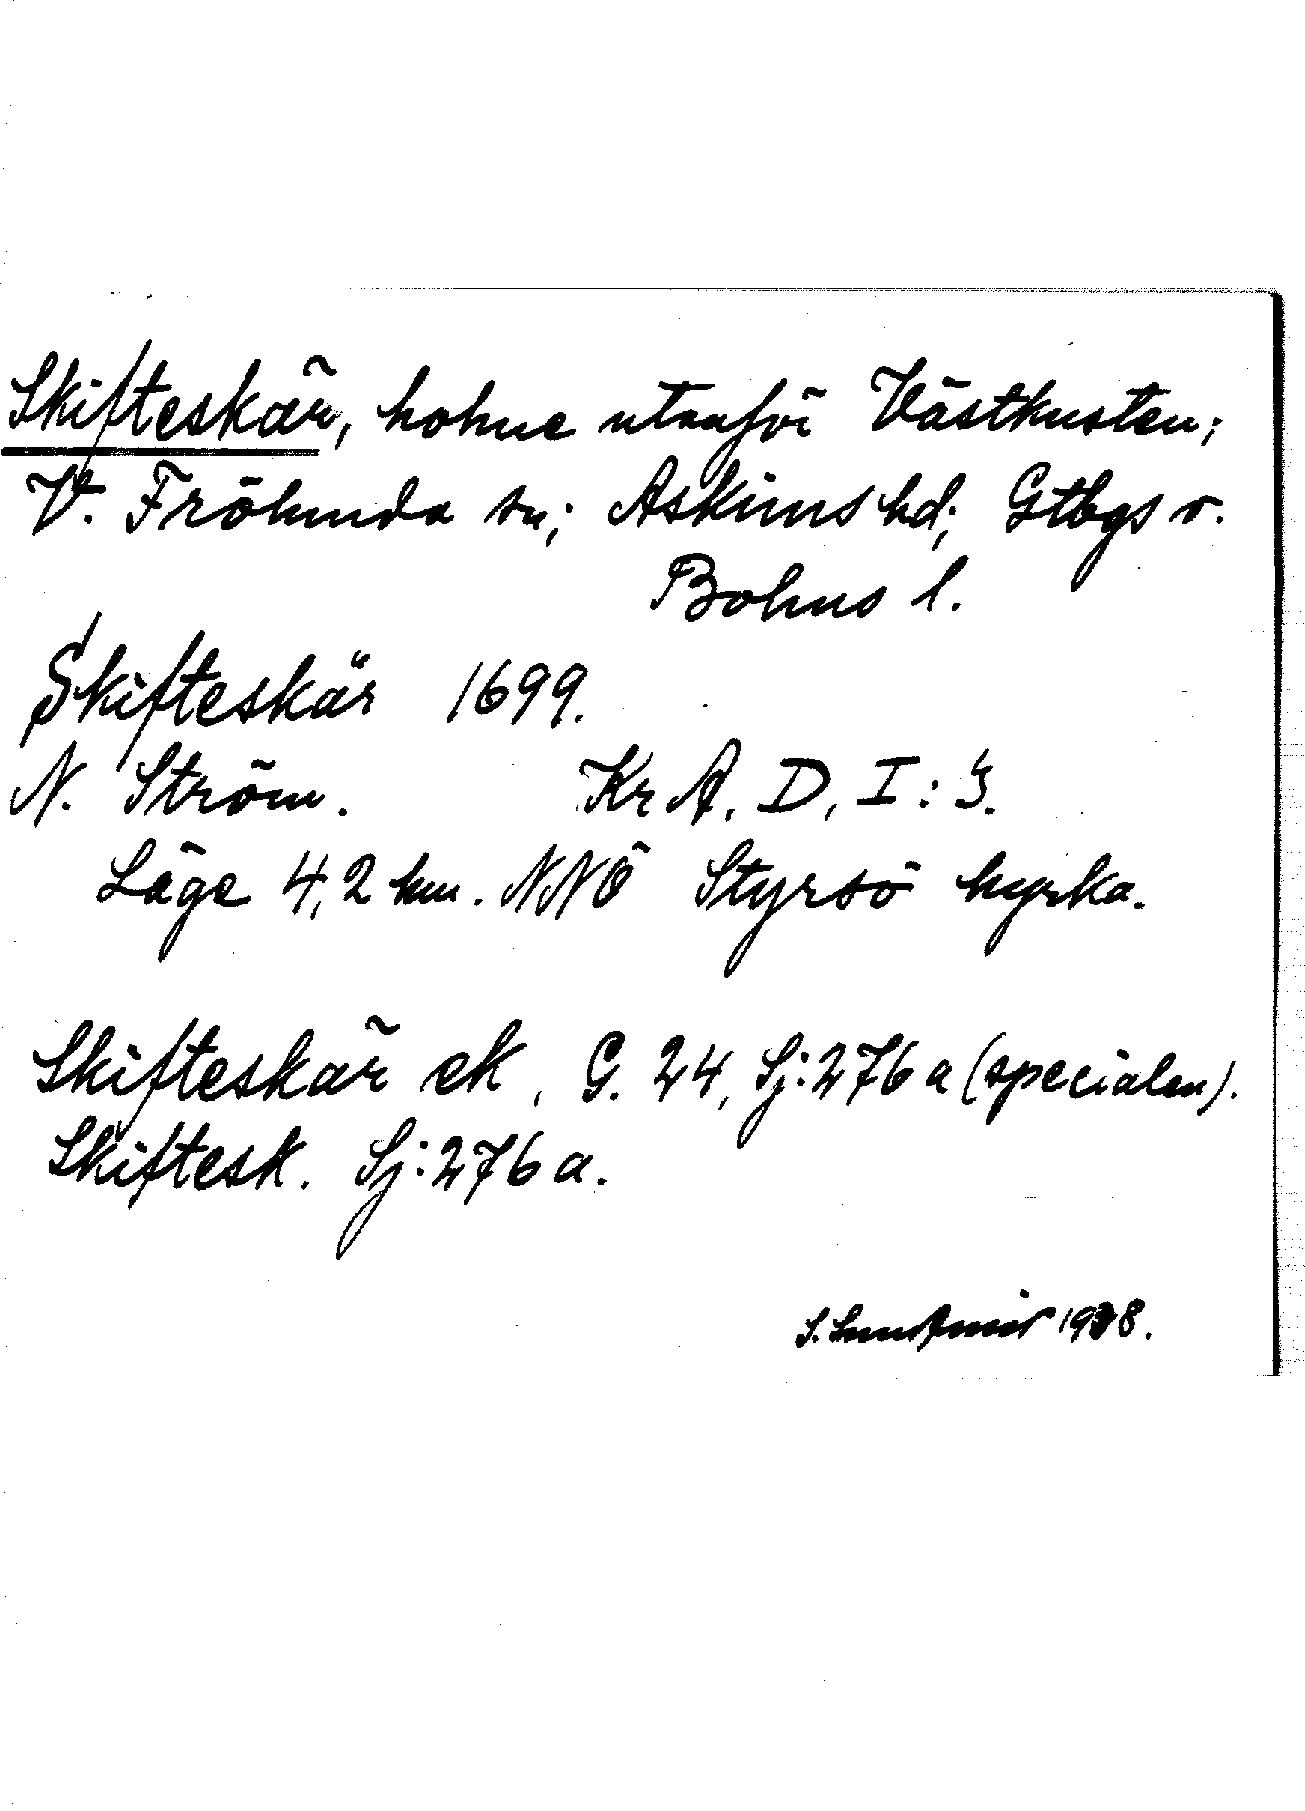 Skifteskär, holme utanför Västkusten;
V. Frölunda sn; Askims hd; Gtbgs o.
Bohus l.
Skifteskär 1699.
N. Ström. Kr A. D, I: 3.
Läge 4,2 km. NNÖ Styrsö kyrka.
Skifteskär ek. G. 24, Sj:276 a (specialen).
Skiftesk. Sj:276 a.
S. 1938.